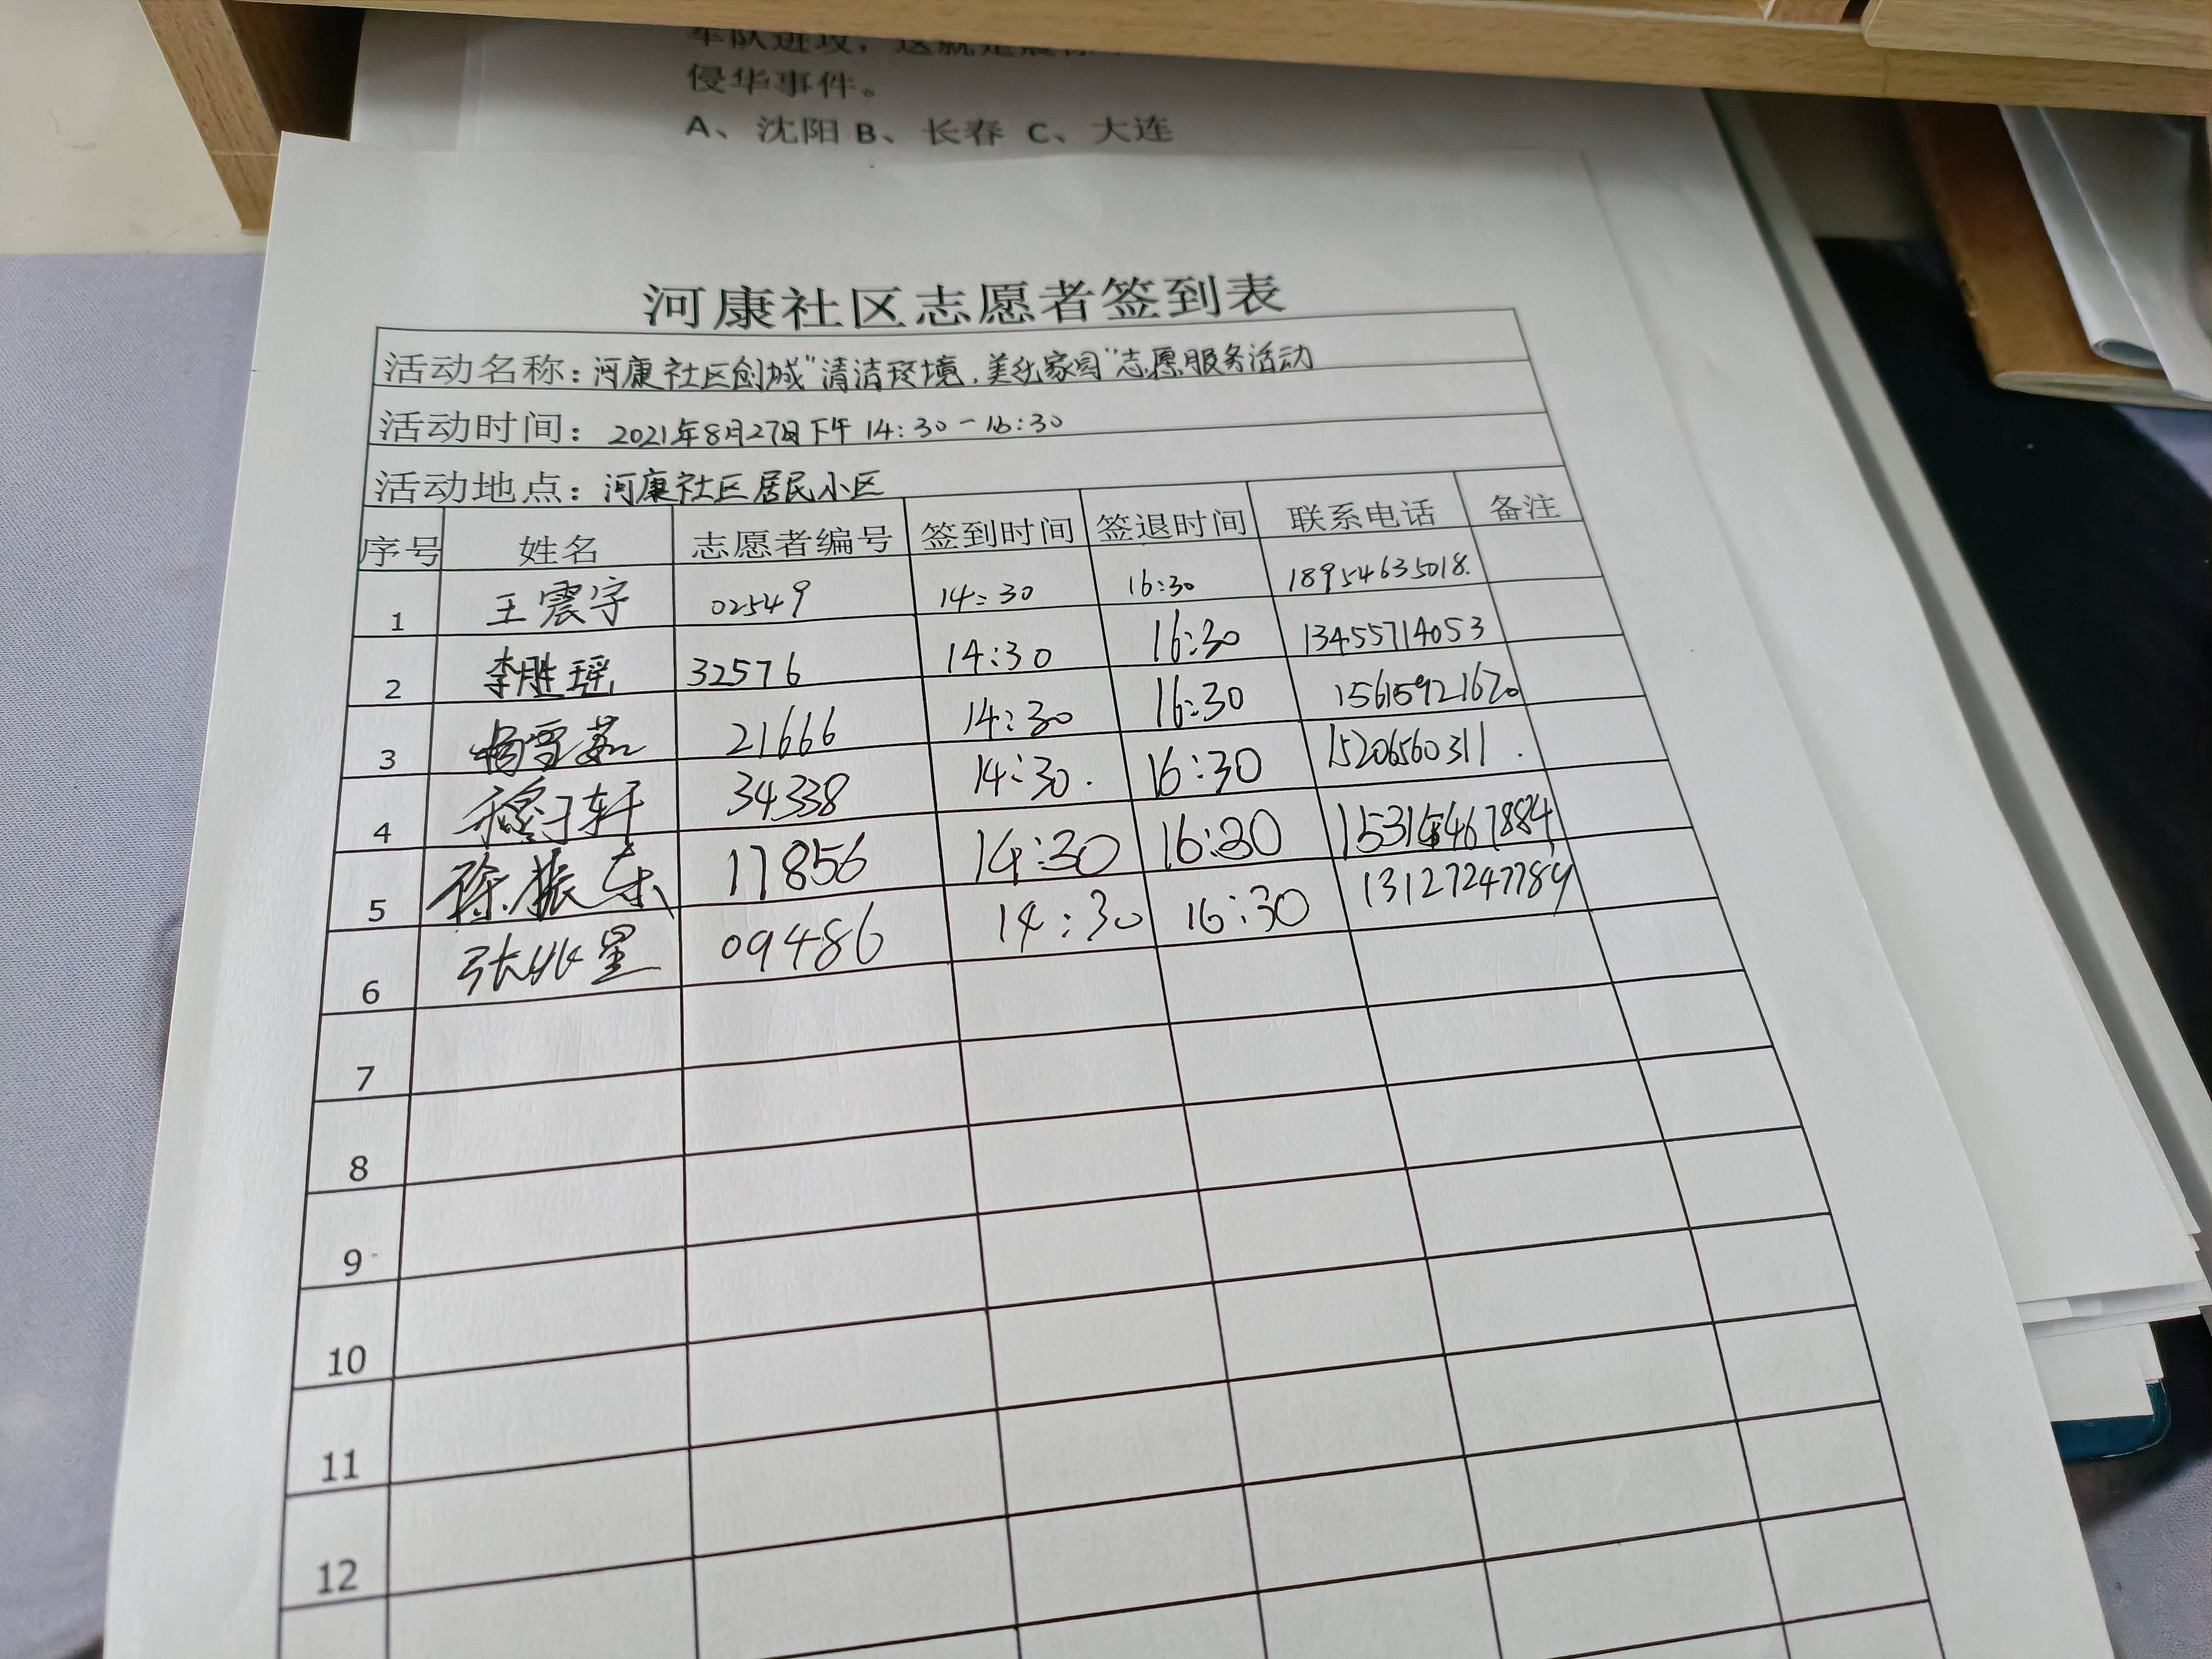 侵华事件。
A、沈阳 B、长春 C、大连
河康社区志愿者签到表
活动名称：河康社区创城“清洁环境，美化家园”志愿服务活动
活动时间：2021年8月27日下午 14:30-16:30
活动地点：河康社区居民小区
序号 姓名 志愿者编号 签到时间 签退时间 联系电话 备注
1 王震宇 02549 14:30 16:30 18954635018.
2 李胜瑶 32576 14:30 16:30 13455714053
3 杨雪茹 21666 14:30 16:30 15615921670
4 穆子轩 34338 14:30. 16:30 15206560311.
5 徐振东 17856 14:30 16:30
6 张兆星 09486 14:30 16:30 13127247789
7
8
9
10
11
12